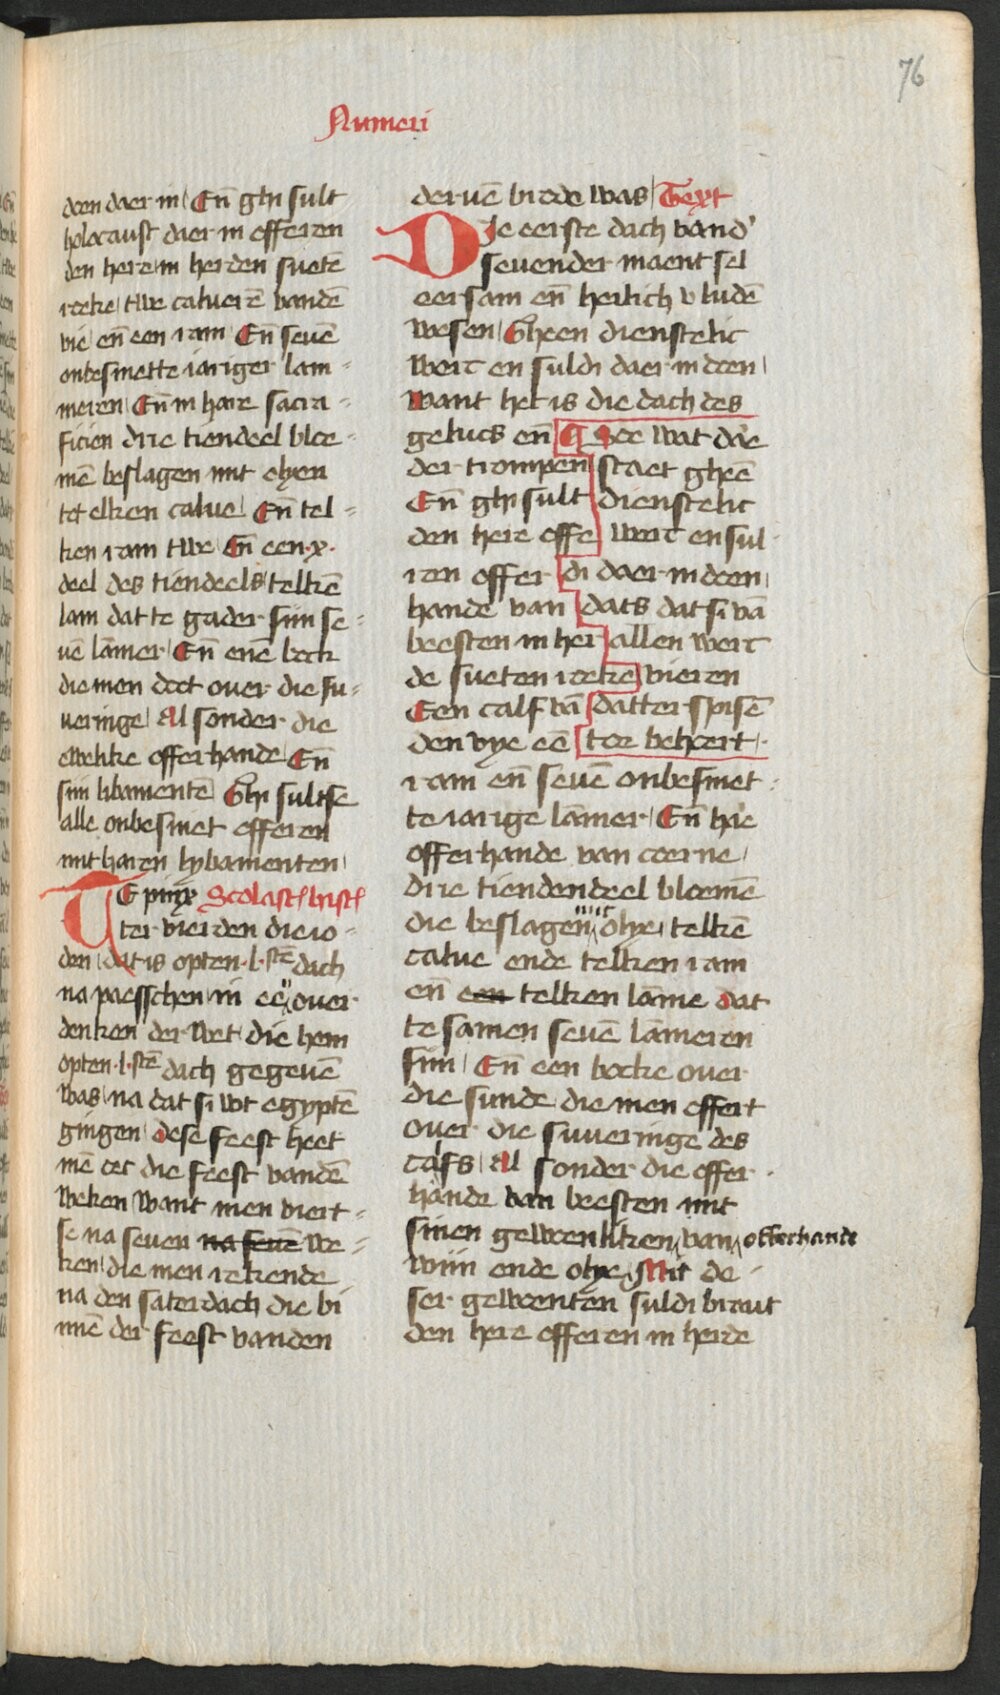 76
Numeri
doen daer in En̄ ghi sult
holocaust daer in offeren
den here in herden suetē
rreke twe calueren vandē
vie en̄ een ram En̄ seuē
onbesmette iariger lam=
meren En̄ in hare sacri=
ficien drie tiendeel bloe=
mē beslagen mit olyen
tot elken calue En̄ tel=
ken ram twe En̄ een .x.
deel des tiendeels telkē
lam dat te gader sijn se=
uē lāmer En̄ enē bock
die men doet ouer die su=
ueringe Al sonder die
ewelike offerhande En̄
sijn libamentē Ghi sultse
alle onbesmet offeren
mit haren lybamenten
TE pinx Scolast hist
ter vierden die io=
den dat is opten .l.stē dach
na paesschen in eē ouer
denken der wet die hem
opten .l.stē dach gegeuē
was na dat si wt egyptē
gingen dese feest heet
mē oec die feest vandē
weken want men viert=
se na seuen na seuē we=
ken die men rekende
na den saterdach die bi
nnē der feest vanden
deruē broede was Text
DJe eerste dach vand'
seuender maent sel
eersam en̄ heilich v ludē
wesen Gheen dienstelic
werc en suldi daer in doen
want het is die dach des
geluds en̄
der trompen
En̄ ghi sult
den here offe
ren offer
hande van
beesten in her
de sueten rreke
Een calf vā
den vye eē
See wat dae
staet gheē
dienstelic
werc en sul
di daer in doen
dats dat si vā
allen werc
vieren
datter spisē
toe behoert
ram en̄ seuē onbesmet
te iarige lāmer En̄ hae
offerhande van coerne
drie tiendendeel bloemē
die beslagen mit olye telkē
calue ende telken ram
en̄ een telken lāme dat
te samen seuē lāmeren
sijn En̄ een bocke ouer
die sunde die men offert
ouer die suueringe des
cāfs Al sonder die offer
hande van beesten mit
sinen gewoenliken van offerhande
wijn ende olye Mit de
ser gewoenten suldi braut
den here offeren in herde